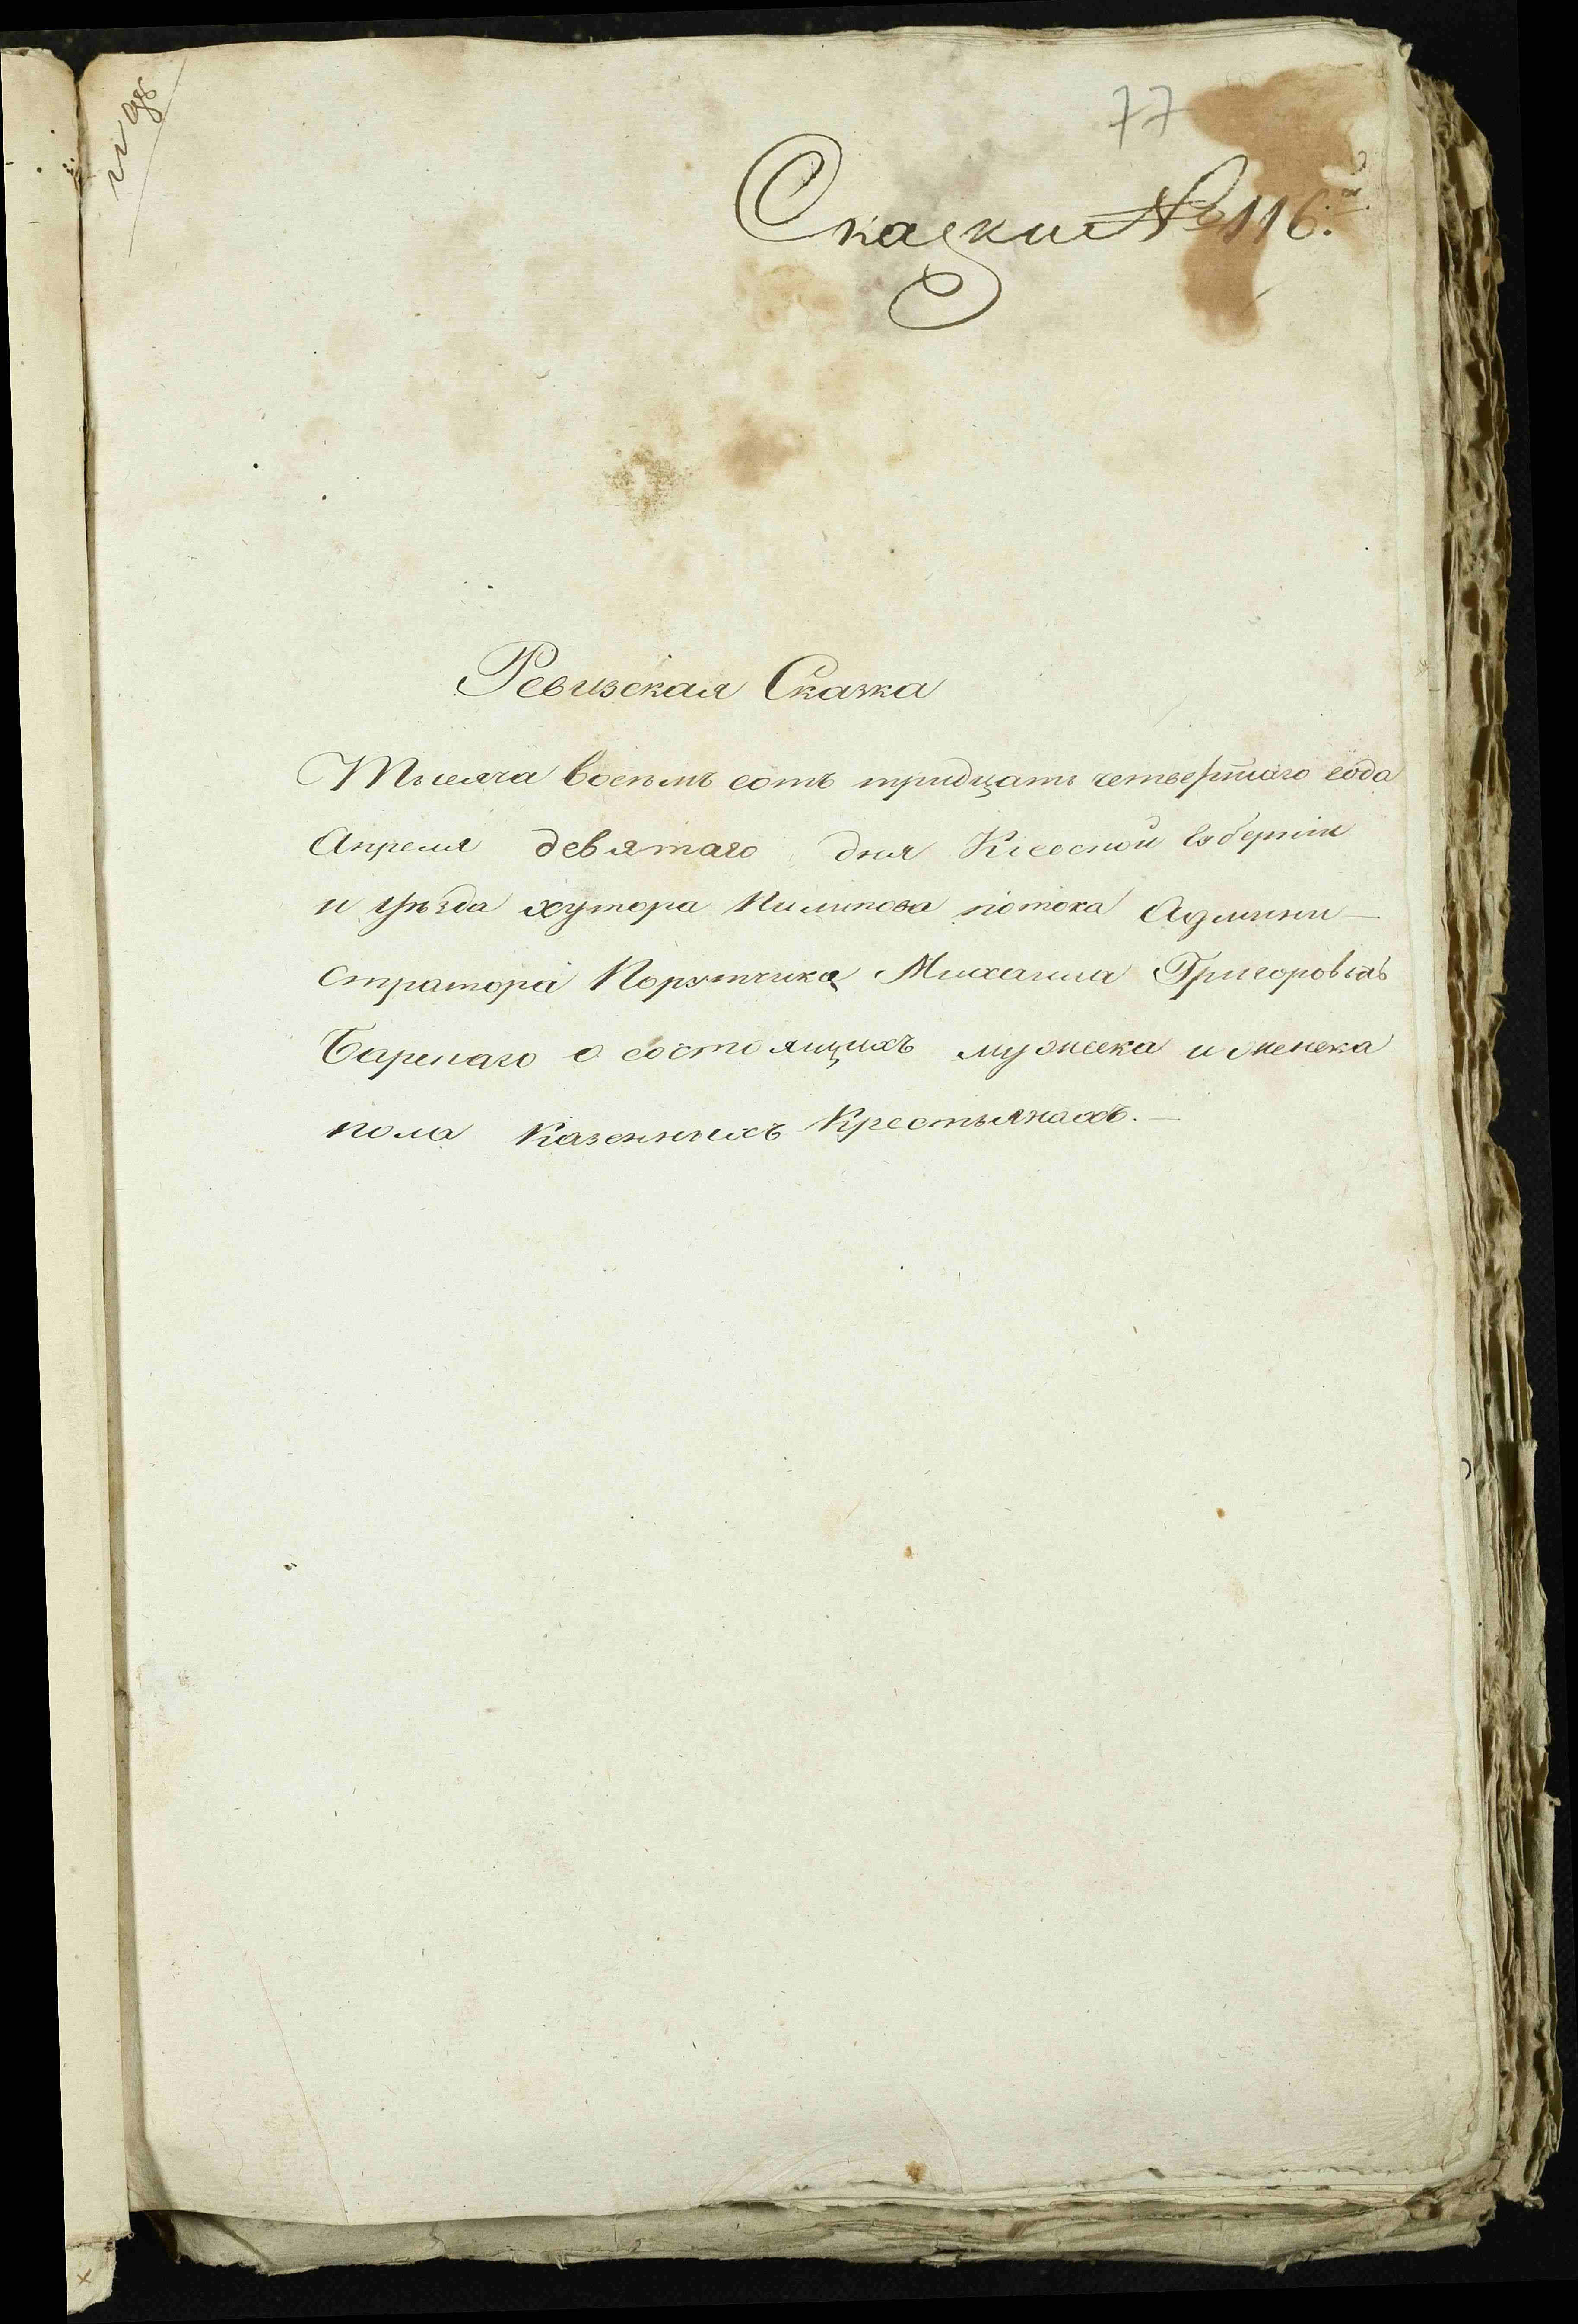 77
Сказки № 116.
Ревизская Сказка
Тысяча восемь сотъ тридцать четвертаго года
Апреля девятаго дня Киевской Губерніи
и уѣзда хутора Пилипова потока Админи-
стратора Порутчика Михаила Григоровіча
о состоящихъ мужеска и женска
пола казенныхъ Крестьянахъ.-